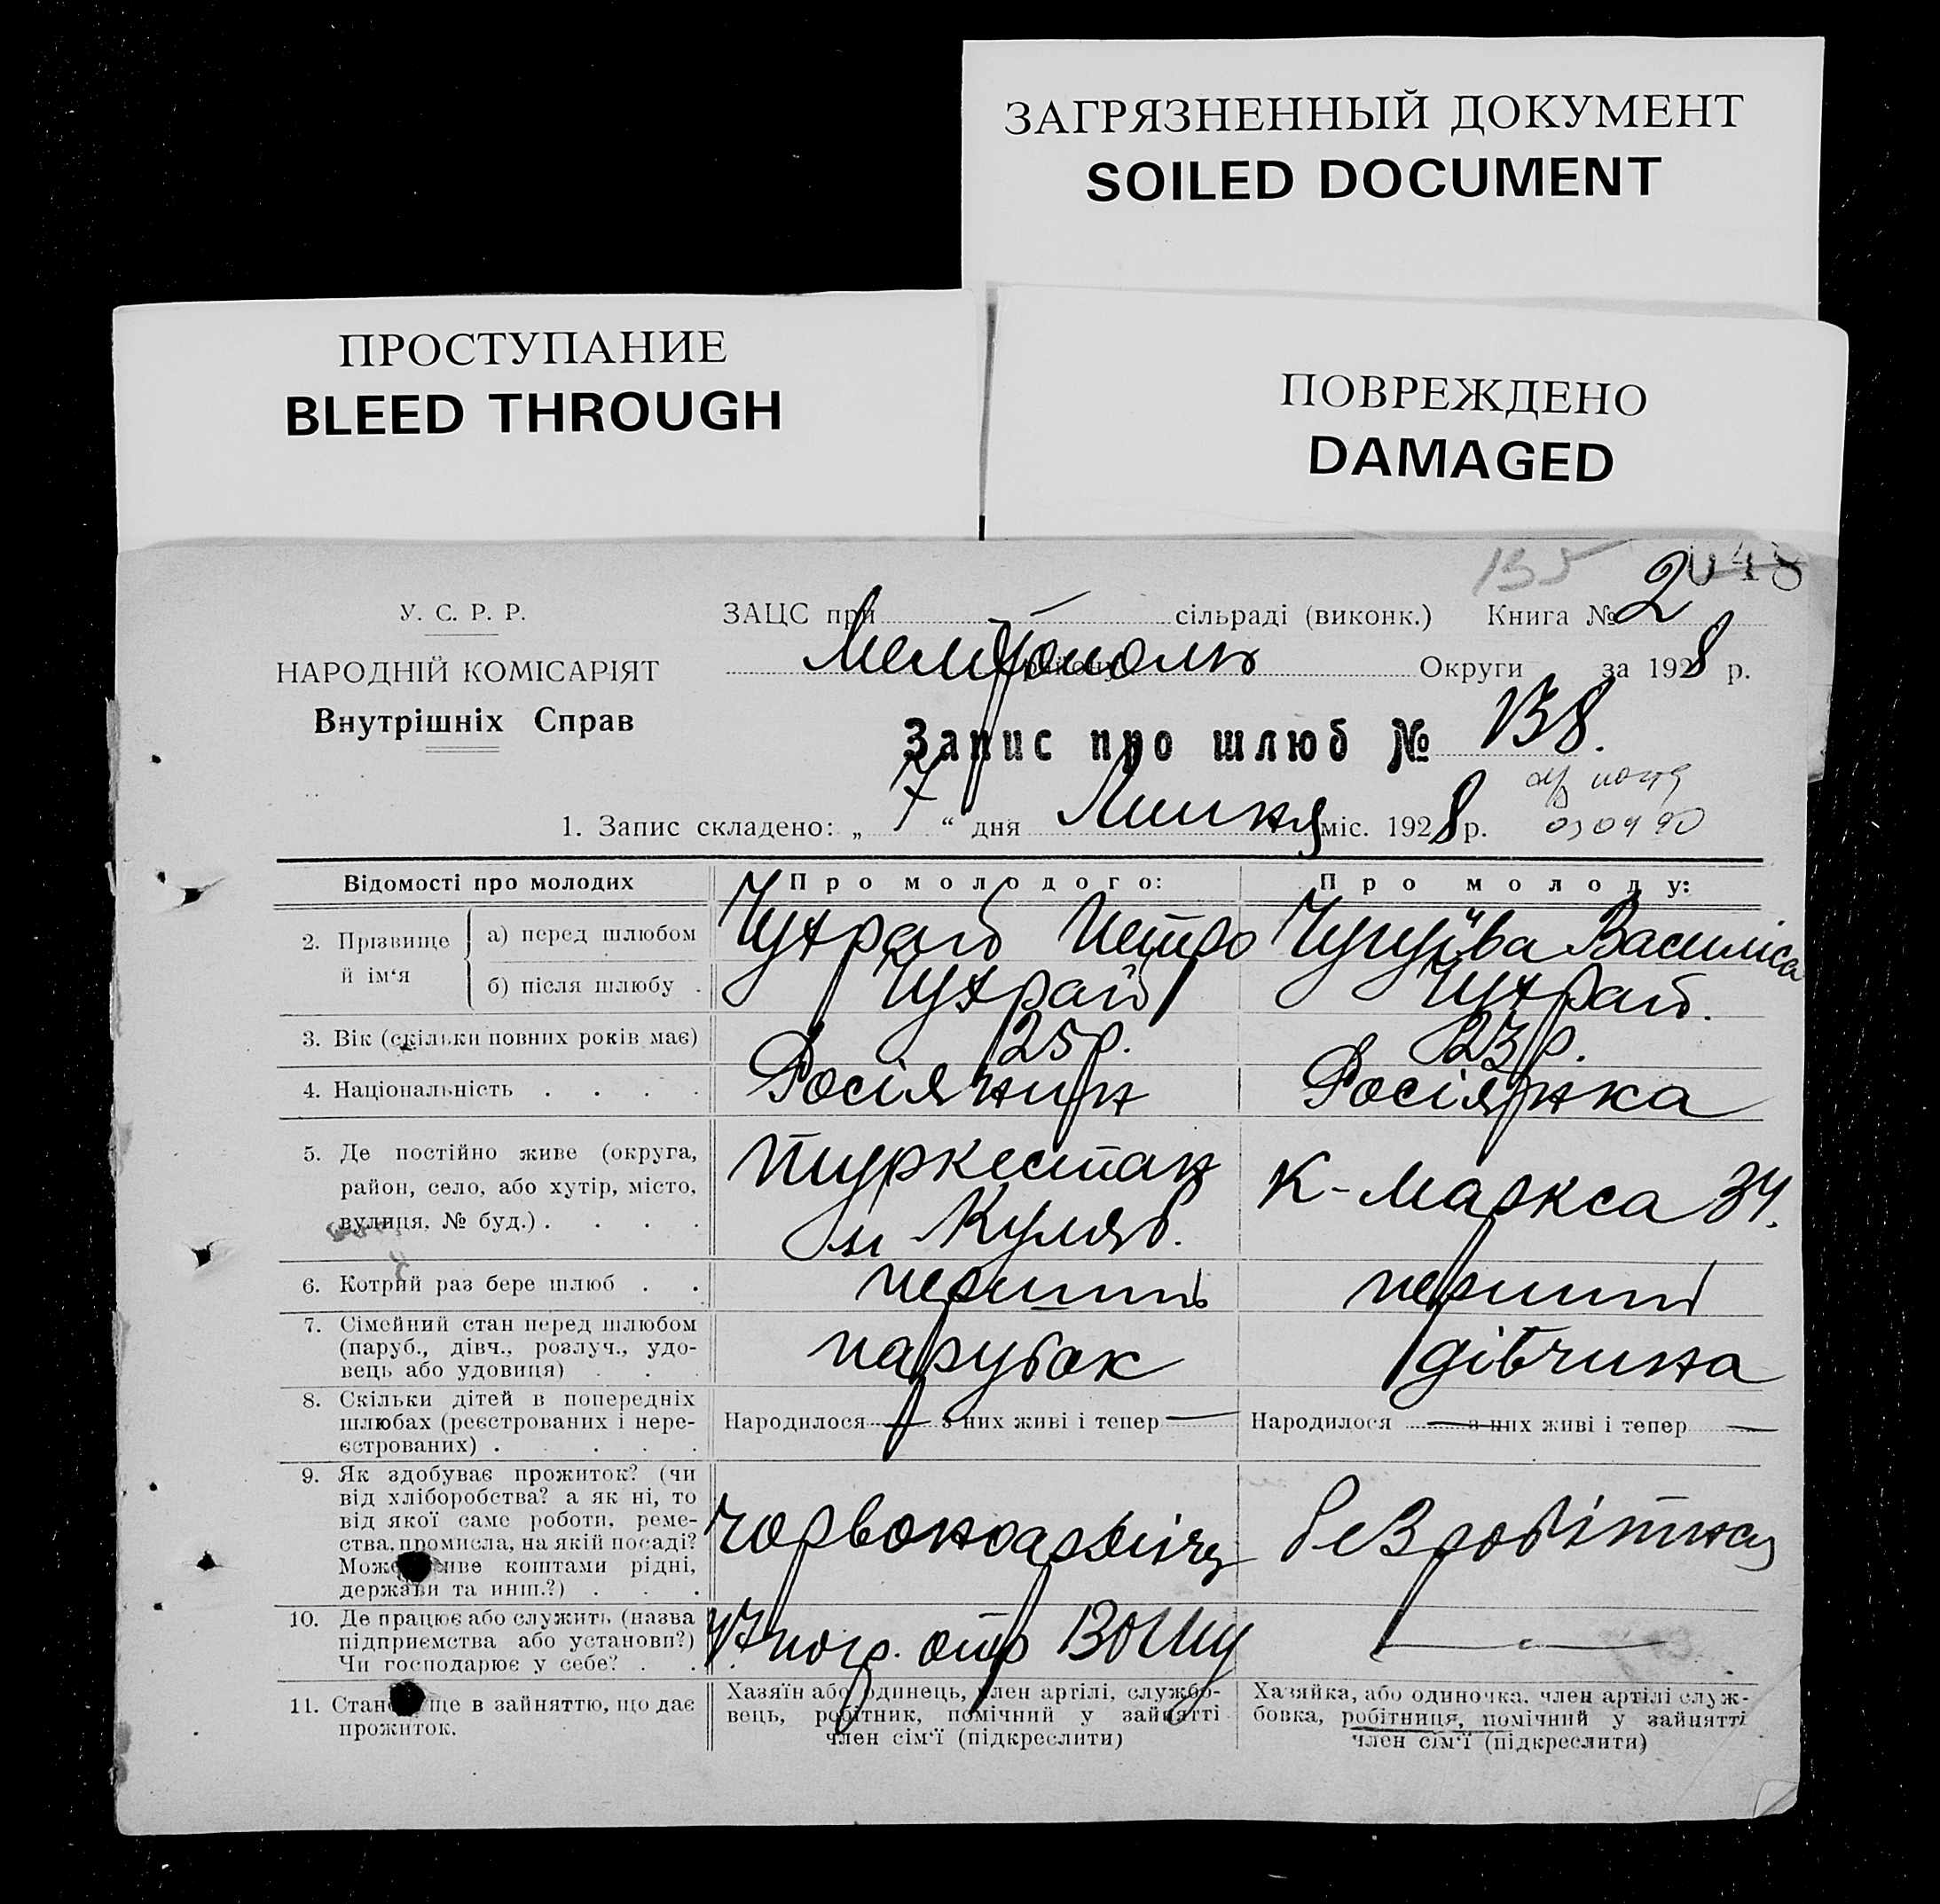 ЗАГРЯЗНЕННЫЙ ДОКУМЕНТ
SOILED DOCUMENT
ПРОСТУПАНИЕ
BLEED THROUGH
ПОВРЕЖДЕНО
DAMAGED
135 2048
У. С. Р. Р.
ЗАЦС при — сільраді (виконк.) Книга № 2
НАРОДНІЙ КОМІСАРІЯТ
Мелітополь району Округи за 1928 р.
Внутрішніх Справ
Запис про шлюб № 138.
1. Запис складено: „7“ дня Липня міс. 1928 р.
Відомості про молодих Про молодого: Про молоду:
2. Прізвище й ім‘я
а) перед шлюбом Чухрай Петро Чугуїва Василіса
б) після шлюбу . Чухрай Чухрай.
3. Вік (скільки повних років має) 25 р. 23 р.
4. Національність . . . . Росіянин Росіянка
5. Де постійно живе (округа,
район, село, або хутір, місто,
вулиця, № буд.) . . . .
Туркестан
м Куляб.
К-Маркса 34.
6. Котрий раз бере шлюб . . перший перший
7. Сімейний стан перед шлюбом
(паруб., дівч., розлуч., удо-
вець або удовиця) . . .
парубок дівчина
8. Скільки дітей в попередніх
шлюбах (реєстрованих і нере-
єстрованих) . . . . .
Народилося — з них живі і тепер — Народилося — з них живі і тепер —
9. Як здобуває прожиток? (чи
від хліборобства? а як ні, то
від якої саме роботи, реме-
ства, промисла, на якій посаді?
Може живе коштами рідні,
держави та инш.?) . . .
червоноармієць безробітна
10. Де працює або служить (назва
підприємства або установи?)
Чи господарює у себе? . .
47 погр. отр
11. Становище в зайняттю, що дає
прожиток.
Хазяїн або одинець, член артілі, службо-
вець, робітник, помічний у зайнятті
член сім‘ї (підкреслити)
Хазяйка, або одиночка, член артілі служ-
бовка, робітниця, помічний у зайнятті
член сім‘ї (підкреслити)